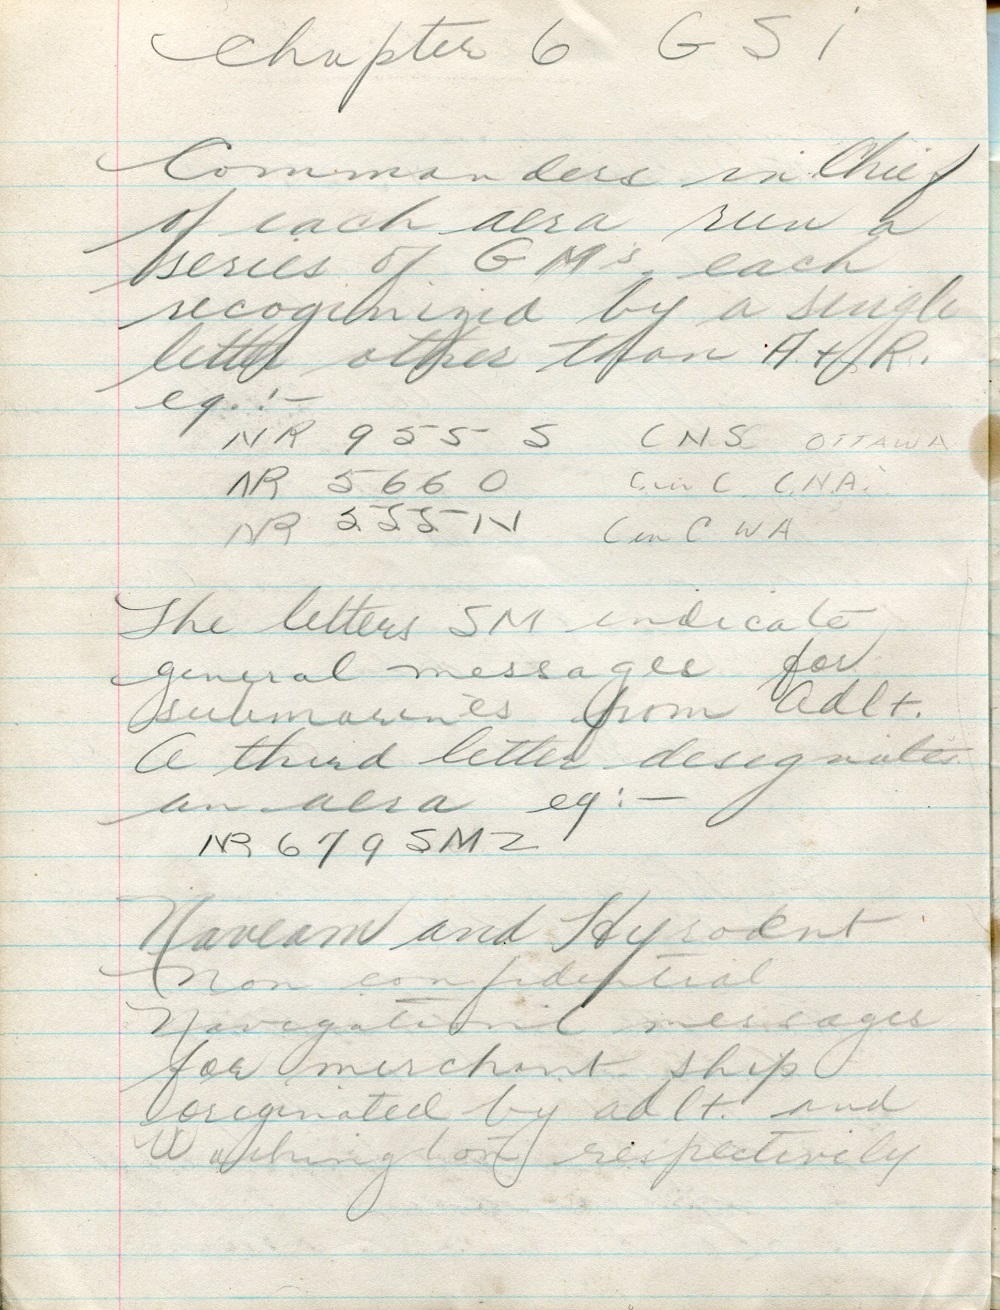 Chapter 6 GSI
Commanders in Chief
of each aera run a
series of GM's, each
recoginizid by a single
letter other than A & R.
eg. :-
NR 955 S CNS OTTAWA
NR 566 O C in C C.N.A.
NR 555 N C in C WA
The letters SM indicate
general messages for
submarines from Adlt.
A third letter designates
an aera eg :-
NR 679 SMZ
Naveam and Hyrodent
Non confidential
Navigational messages
for merchant ship
originated by adlt. and
Washington respectively